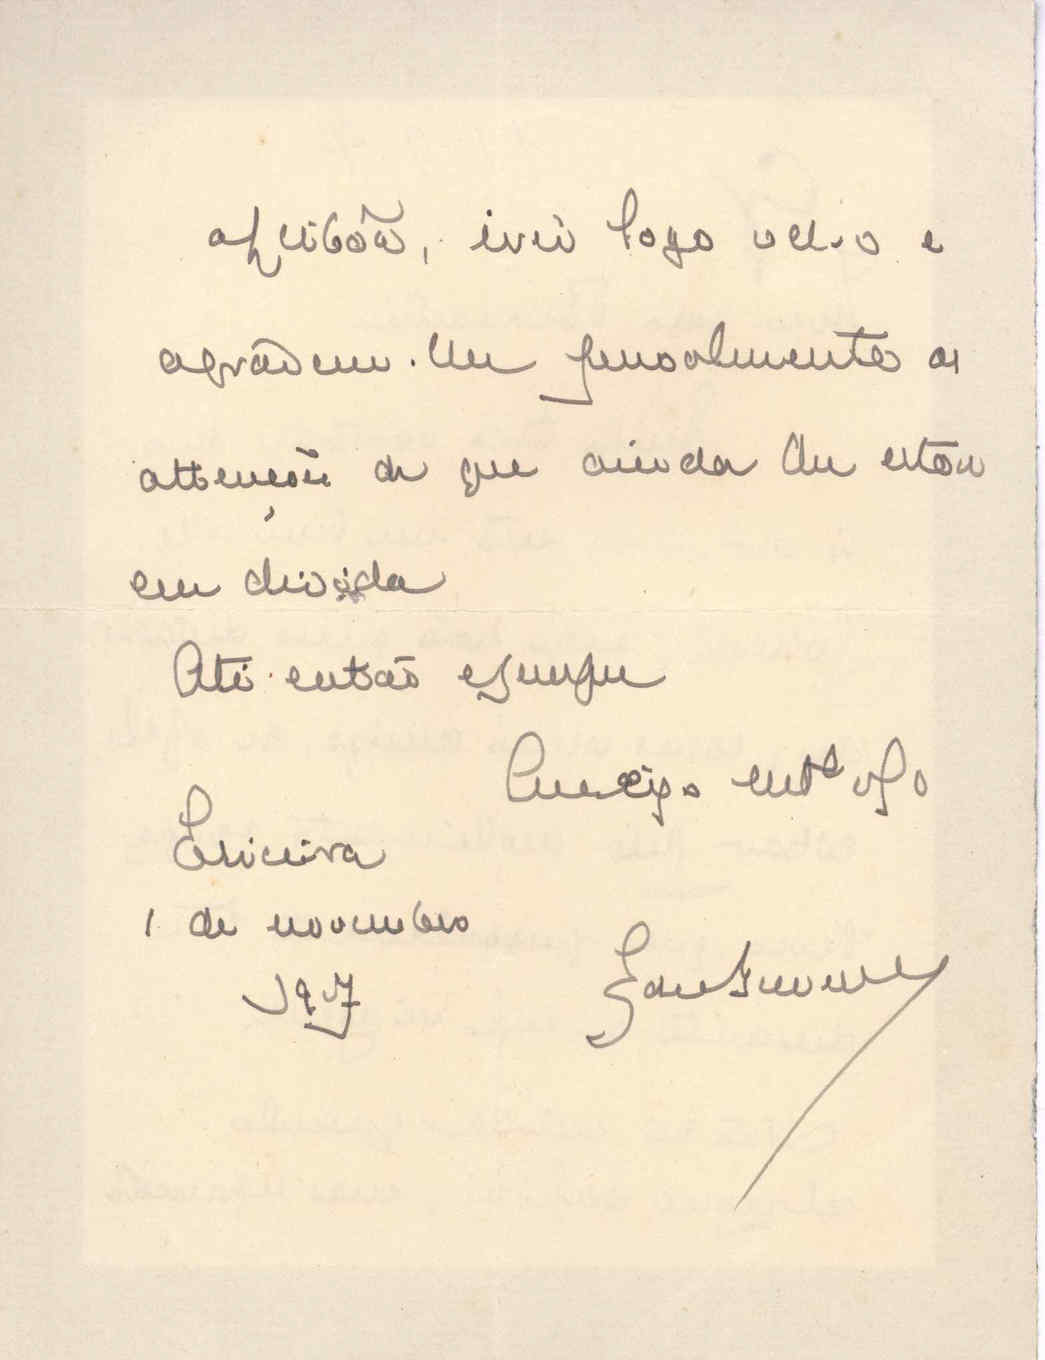 a Lisboa, irei logo vel-o e
agradecer-lhe pessoalmente as
attenções de que ainda lhe estou
em divida
Até então e sempre
Amigo mtº obgo
Ericeira
1 de novembro
1927